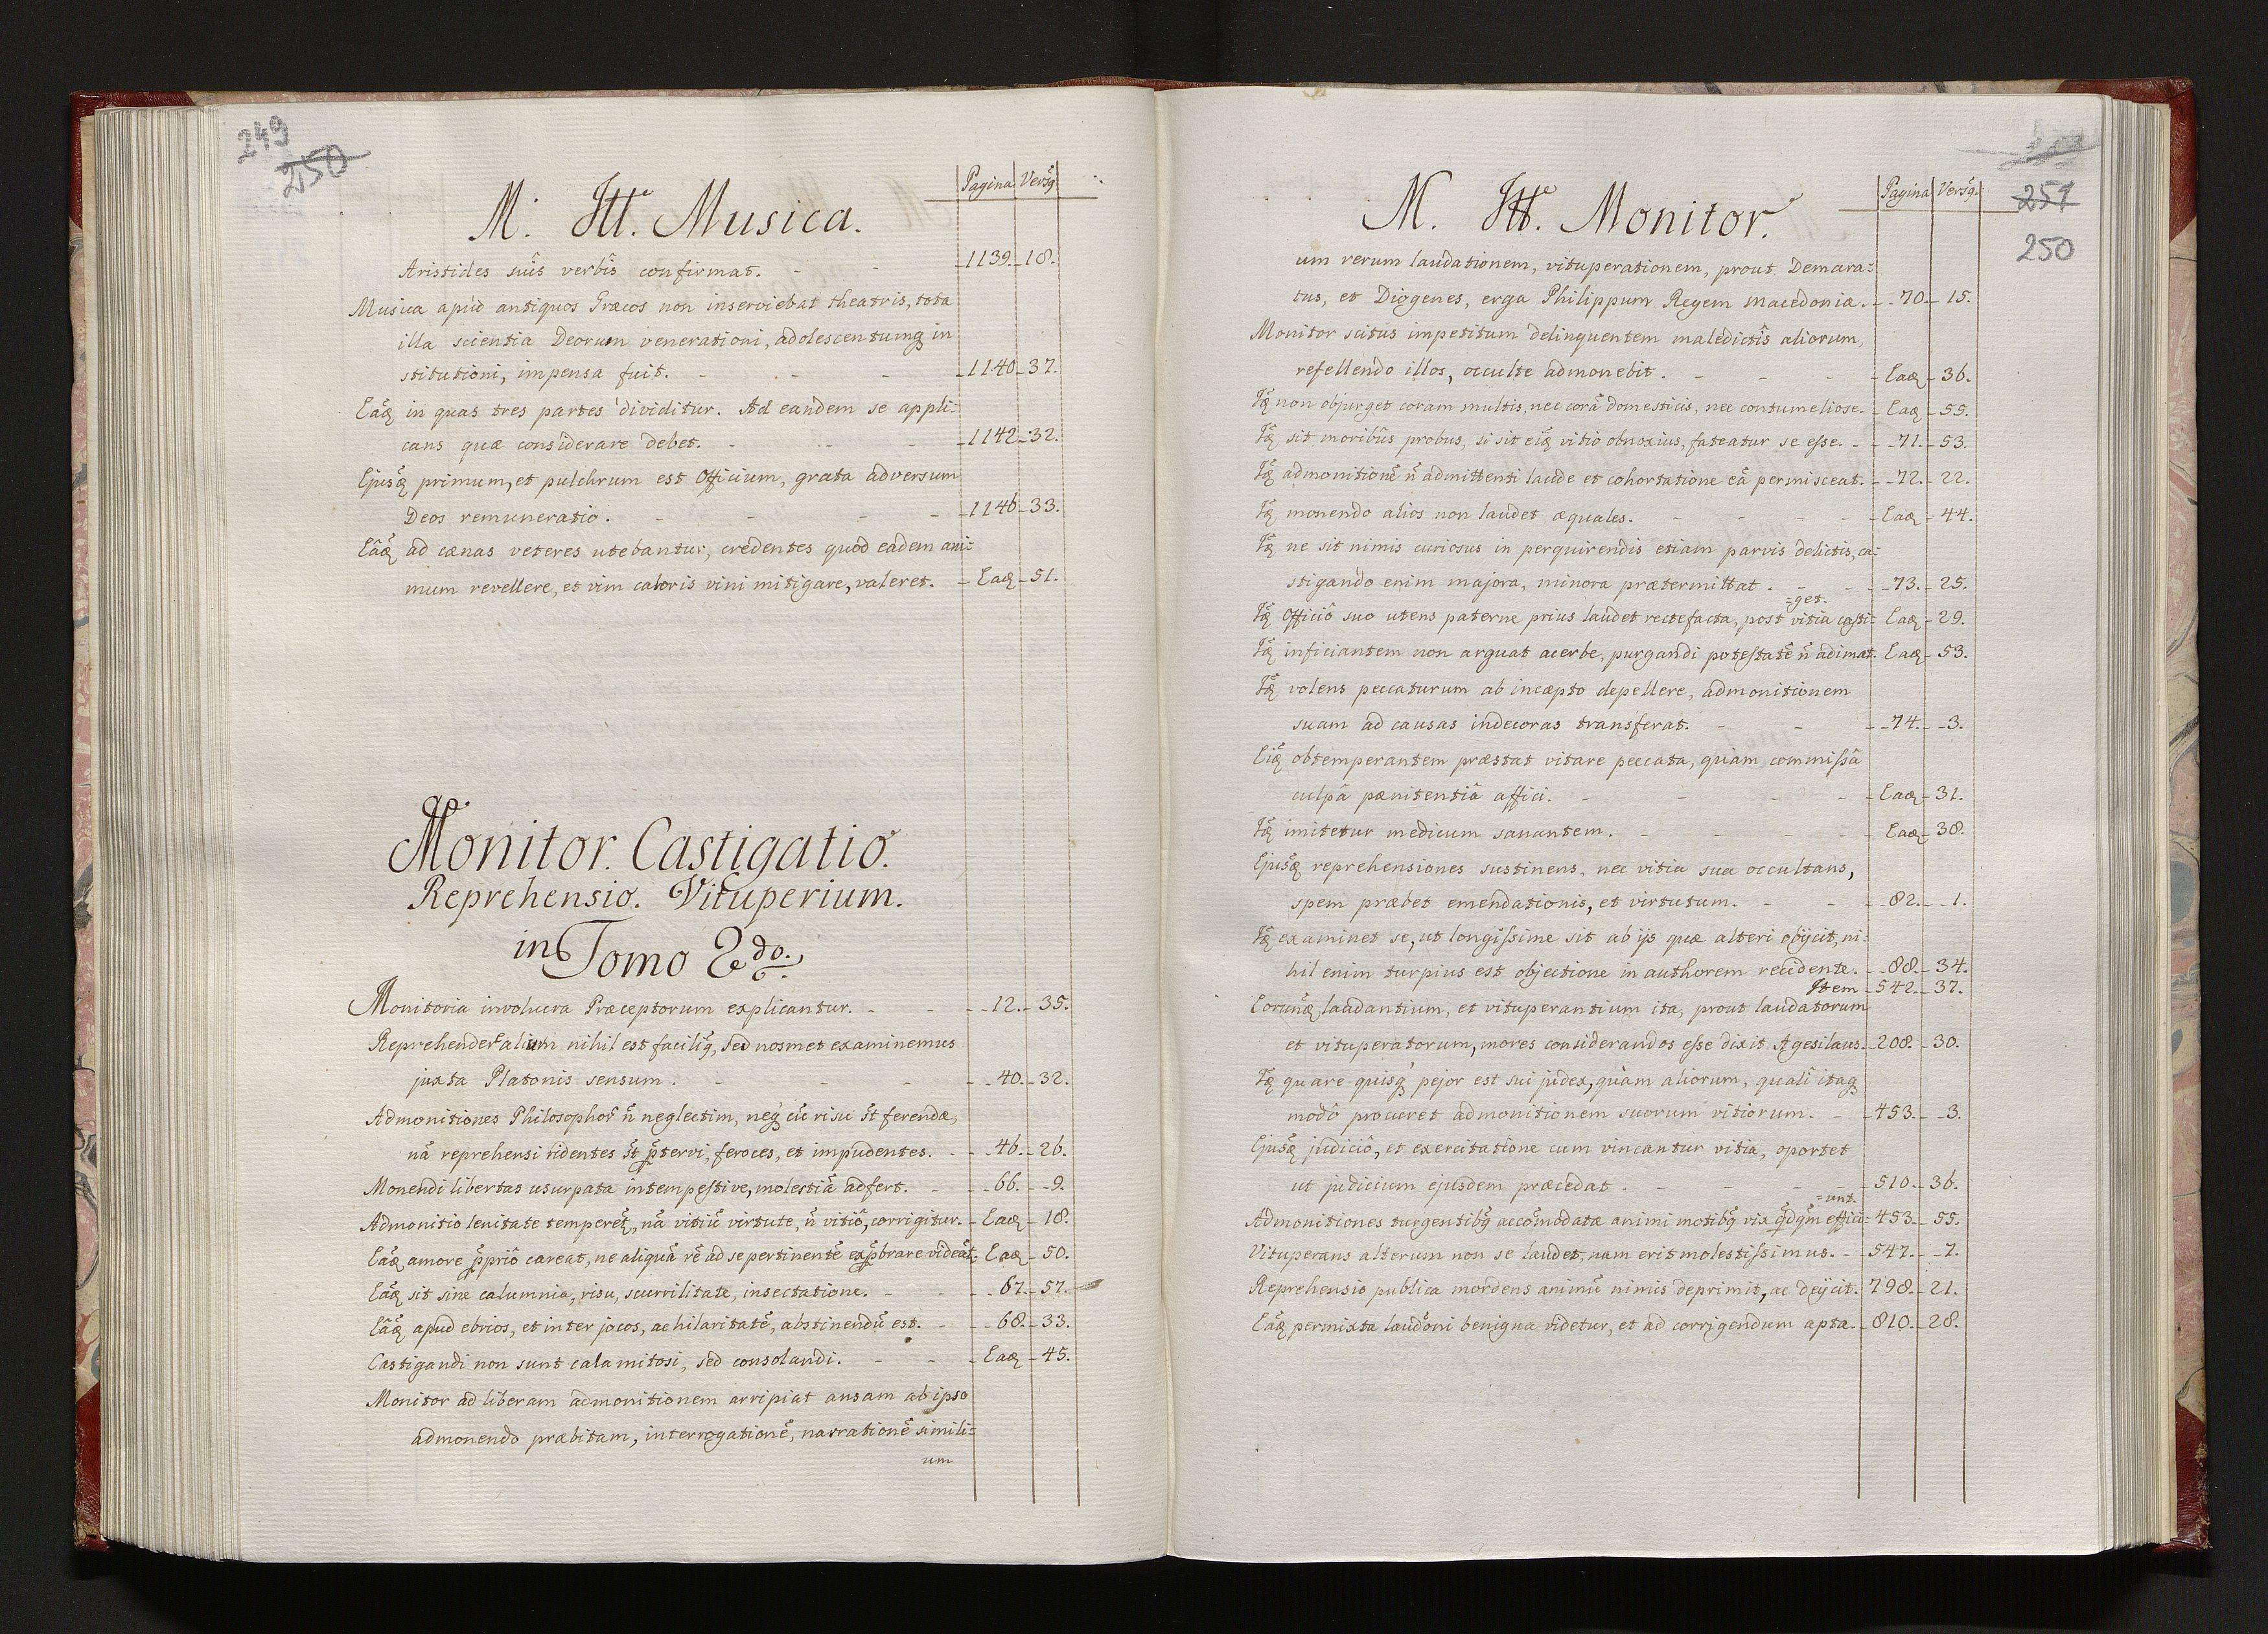 249
250
M. Itt. Musica.
Pagina Versq
Aristides suis verbis confirmat. - 1139. 18.
Musica apud antiquos Græcos non inserviebat theatris, tota
illa scientia Deorum venerationi, adolescentumq in
stitutioni, impensa fuit. - 1140. 37.
Eaq in quas tres partes dividitur. Ad eandem se appli:
cans quæ considerare debet. - 1142. 32.
Ejusq primum, et pulchrum est Officium, grata adversum
Deos remuneratio. - 1146. 33.
Eâq ad cænas veteres utebantur, credentes quod eadem ani:
mum revellere, et vim caloris vini mitigare, valeret. - Eaq - 51.
Monitor. Castigatio.
Reprehensio. Vituperium.
in Tomo 2do.
Monitoria involucra Præceptorum explicantur. - 12. 35.
Reprehender alium nihil est faciliq, sed nosmet examinemus
juxta Platonis sensum. - 40. 32.
Admonitiones Philosophor n̄ neglectim, neq cū risu st ferendæ,
nā reprehensi ridentes st ptervi, feroces, et impudentes. - 46. 26.
Monendi libertas usurpata intempestive, molestiā adfert. - 66. 9.
Admonitio lenitate temperet, nā vitiū virtute, n̄ vitiô, corrigitur. - Eaq - 18.
Eaq amore ppriô careat, ne aliquā rē ad se pertinentē expbrare videat. Eaq - 50.
Eaq sit sine calumnia, risu, scurrilitate, insectatione. - 67. 57.
Eâq apud ebrios, et inter jocos, ac hilaritatē, abstinendū est. - 68. 33.
Castigandi non sunt calamitosi, sed consolandi. - Eaq - 45.
Monitor ad liberam admonitionem arripiat ansam ab ipso
admonendo præbitam, interrogationē, narrationē simili:
um
M. Itt. Monitor.
Pagina Versq.
251
250
um rerum laudationem, vituperationem, prout Demara:
tus, et Diogenes, erga Philippum Regem Macedoniæ. - 70. 15.
Monitor scitus impetitum delinquentem maledictis aliorum,
refellendo illos, occulte admonebit. - Eaq - 36.
Iq non objurget coram multis, nec corā domesticis, nec contumeliose. - Eaq - 55.
Iq sit moribus probus, si sit eiq vitio obnoxius, fateatur se esse. - 71. 53.
Iq admonitionē n̄ admittenti laude et cohortatione eā permisceat. - 72. 22.
Iq monendo alios non laudet æquales. - Eaq - 44.
Iq ne sit nimis curiosus in perquirendis etiam parvis delictis, ca:
stigando enim majora, minora prætermittat. - 73. 25.
=get.
Iq Officiô suo utens paterne prius laudet rectefacta, post vitia casti: Eaq - 29.
Iq inficiantem non arguat acerbe, purgandi potestatē n̄ adimat. Eaq - 53.
Iq volens peccaturum ab incæpto depellere, admonitionem
suam ad causas indecoras transferat. - 74. 3.
Eiq obtemperantem præstat vitare peccata, quàm commissâ
culpâ pænitentiâ affici. - Eaq - 31.
Iq imitetur medicum sanantem. - Eaq - 38.
Ejusq reprehensiones sustinens, nec vitia sua occultans,
spem præbet emendationis, et virtutum. - 82. 1.
Iq examinet se, ut longissime sit ab ijs quæ alteri objicit, ni:
hil enim turpius est objectione in authorem recidente. - 88. 34.
Item - 542. 37.
Eorunq laudantium, et vituperantium ita, prout laudatorum
et vituperatorum, mores considerandos esse dixit Agesilaus. 208. 30.
Iq quare quisq pejor est sui judex, quàm aliorum, quali itaq
modô procuret admonitionem suorum vitiorum. - 453. 3.
Ejusq judiciô, et exercitatione cum vincantur vitia, oportet
ut judicium ejusdem præcedat. - 510. 36.
=unt.
Admonitiones turgentibq accomodatæ animi motibq vix qdqm effici: 453. 55.
Vituperans alterum non se laudet, nam erit molestissimus. - 547. 7.
Reprehensio publica mordens animū nimis deprimit, ac dejicit. 798. 21.
Eaq permixta laudoni benigna videtur, et ad corrigendum apta. 810. 28.